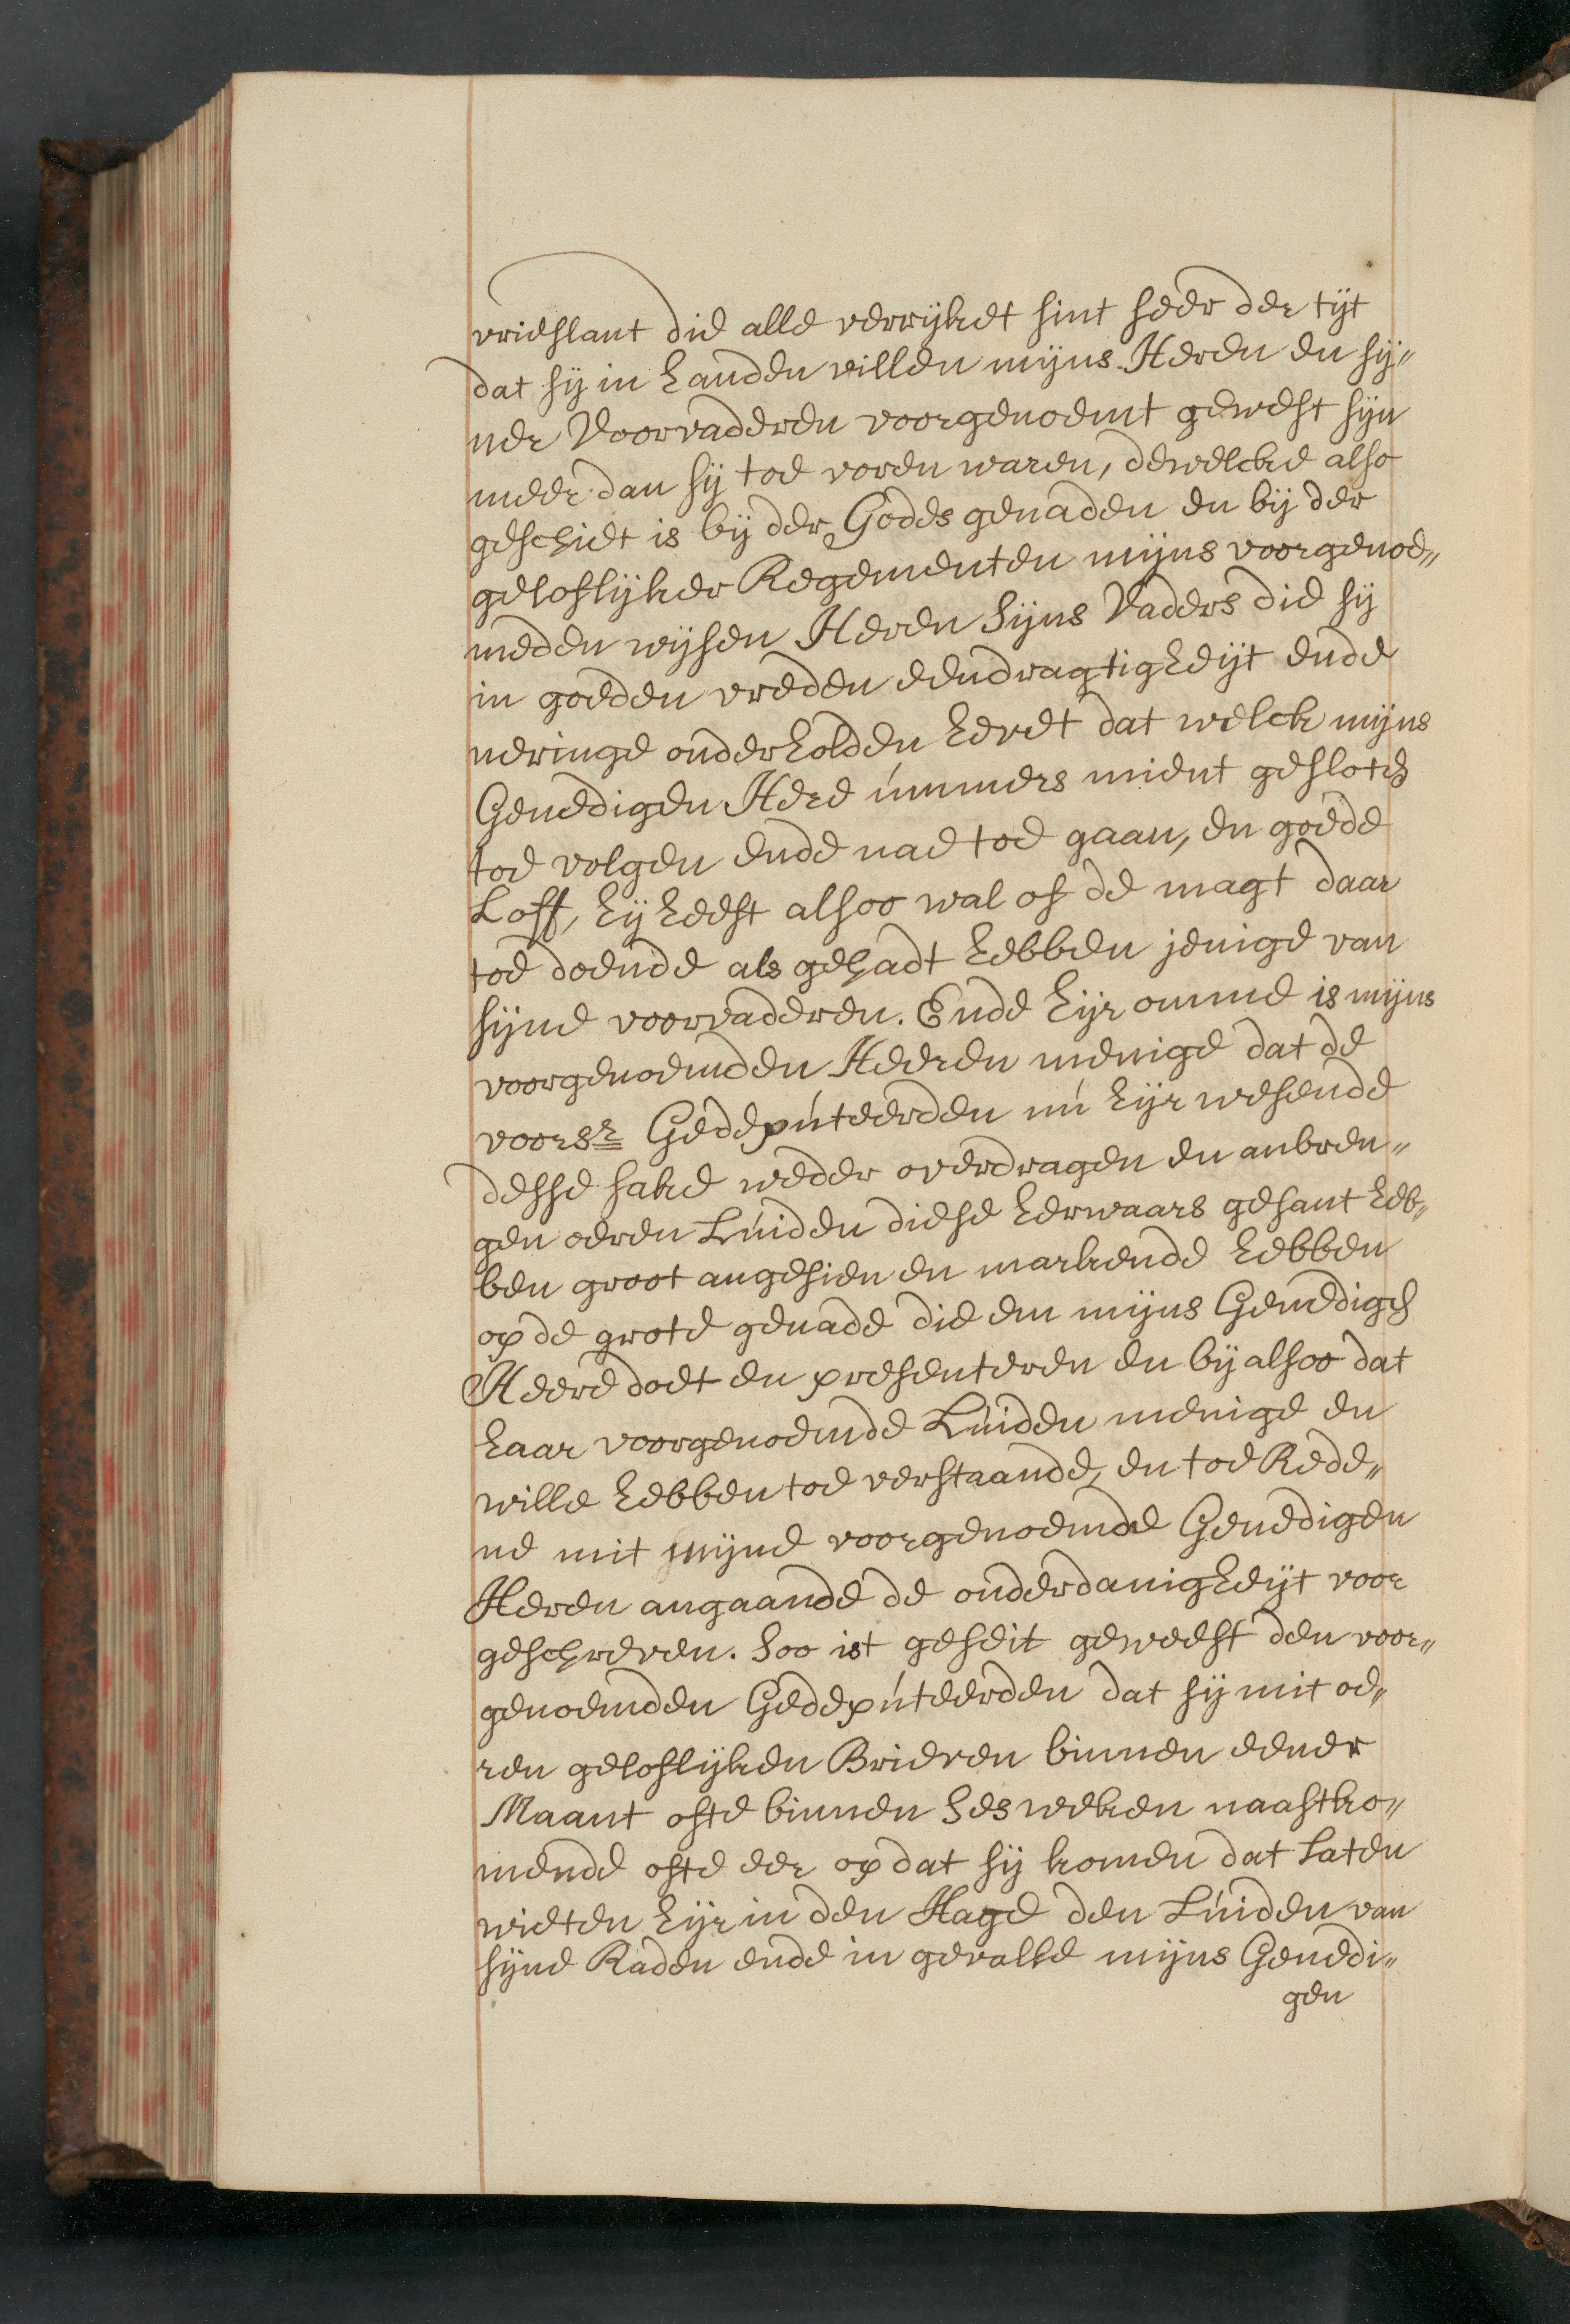 vrieslant die alle verrijket sint seer der tijt
dat sij in handen villen mijns Heren en sij„
ner Voorvaderen voorgenoemt gewest sijn
meer dan sij toe voren waren, dewelcke also
geschiet is bij der Godes genaden en bij der
geloflijker Regementen mijns voorgenoe„
meden wijsen Heren Sijns Vaders die sij
in goeden vreden eendragtigheijt ende
neringe onderholden hevet dat welck mijns
Genedigen Here ummers mient gesloten
toe volgen ende nae toe gaan, en goede
Loff, hij heest alsoo wal of de magt daar
toe doende als gehadt hebben jenige van
sijne voorvaderen. Ende hijr omme is mijns
voorgenoemden Heeren menige dat de
voorsr Gedeputeerden nu hijr wesende
desse sake weder overdragen en anbren„
gen oeren Luiden diese herwaars gesant heb„
ben groot angesien en markende hebben
op de grote genade die em mijns Genedigen
Heere doet en presenteren en bij alsoo dat
haar voorgenoemde Luiden menige en
wille hebben toe verstaande, en toe Rede„
ne mit mijne voorgenoemde Genedigen
Heren angaande de onderdanigheijt voor
geschreven. Soo ist geseit geweest den voor„
genoemden Gedeputeerden dat sij mit oe„
ren geloflijken Brieven binnen eener
Maant ofte binnen Ses weken naastko„
mende ofte eer op dat sij komen dat Laten
wieten hijr in den Hage den Luiden van
sijne Raden ende in gevalle mijns Genedi„
gen